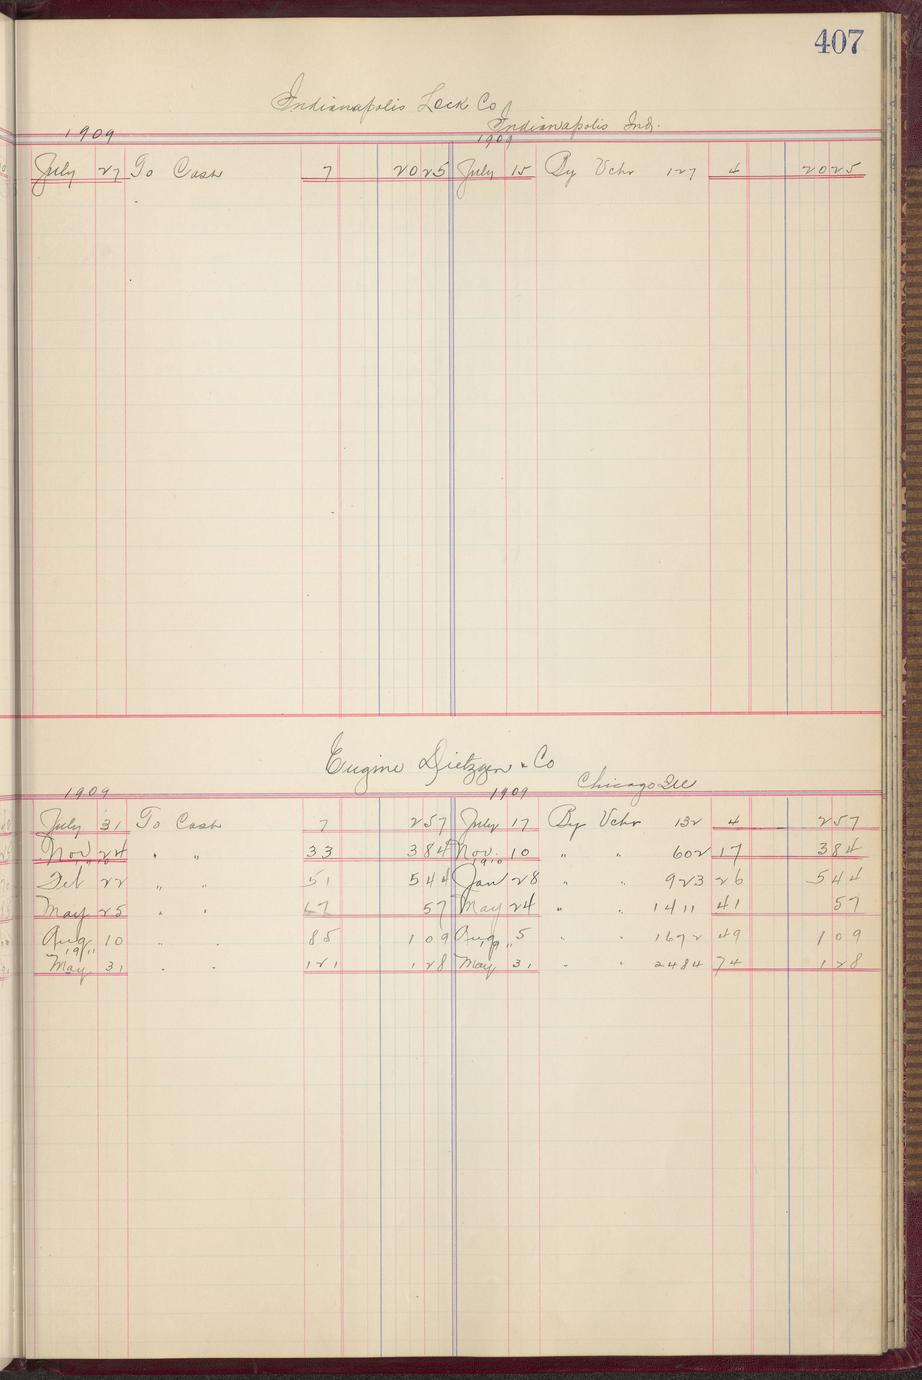 407
Indianapolis Lock Co
Indianapolis Ind.
1909 1909
July 27 To Cash 7 2025 July 15 By Vchr 127 4 2025
Eugine Dietzgen & Co
Chicago Ill
1909 1909
July 31 To Cash 7 257 July 17 By Vchr 132 4 257
Nov 24 " " 33 384 Nov. 10 " " 602 17 384
1910 1910
Feb 22 " " 51 544 Jan 28 " " 923 26 544
May 25 " " 67 57 May 24 " " 1411 41 57
Aug 10 " " 85 109 Aug 5 " " 1672 49 109
1911 1911
May 31 " " 121 128 May 31 " " 2484 74 128